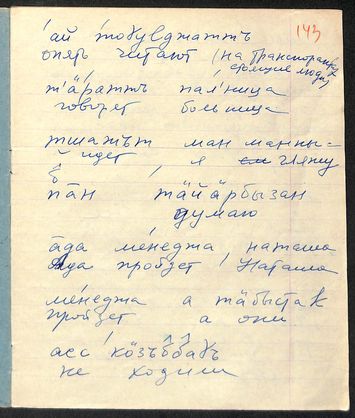 143
ай тобувджаттъ
опять читают (на транспорантах
стоящие люди)
т'ǟраттъ пал'ница
говорят больница
тшажът ман манны=
идет я гляжу
ман тӓйӓрбызан
думаю
ӓда мéнеджа наташа
Ада пройдет Наташа
мéнеджа а тӓбыстак
пройдет а они
асс кöзъ̂ббӓтъ
не ходили